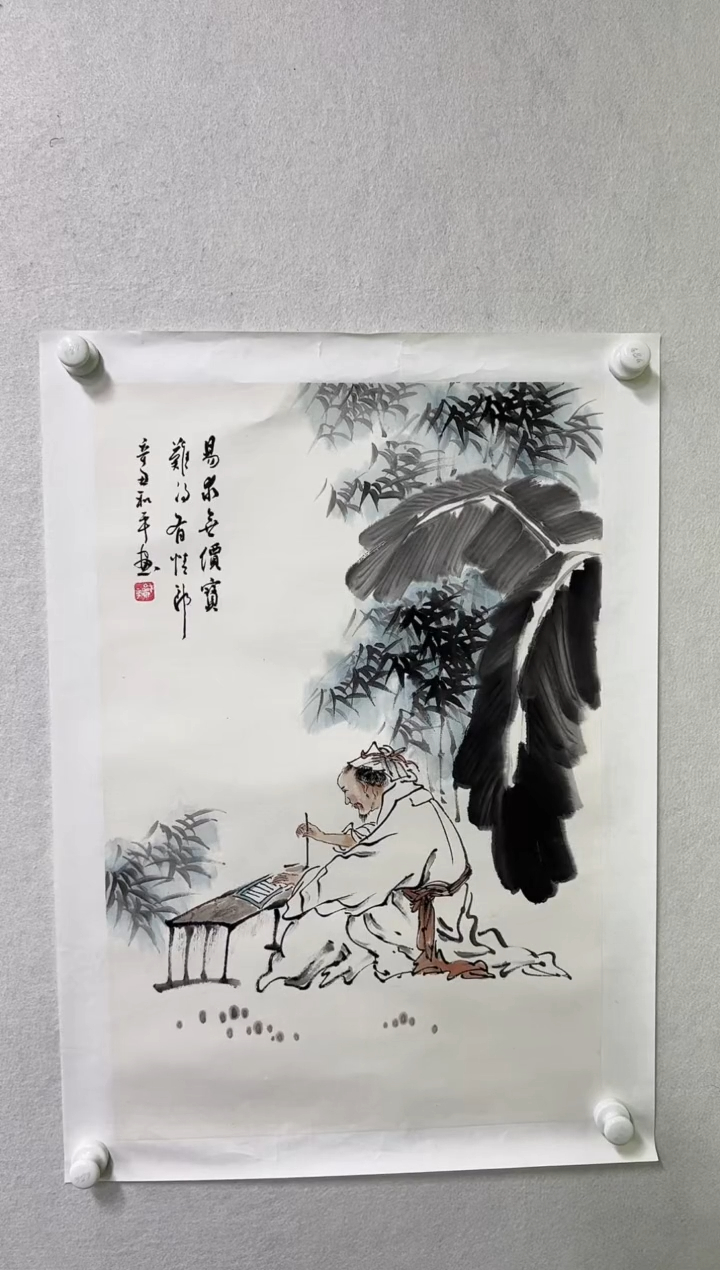 易求無價寶
難得有情郎
辛丑和平畫